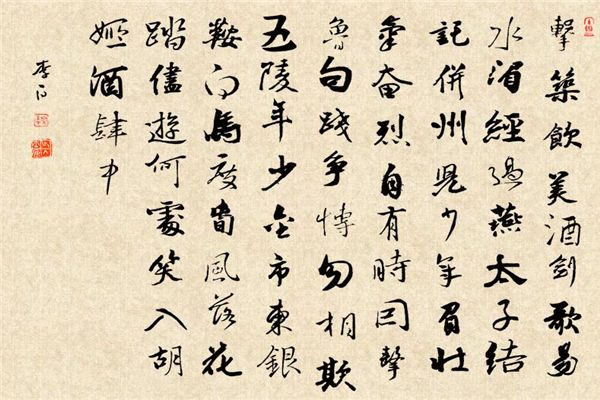 擊築飲美酒劍歌易
水湄經過燕太子結
託併州兒少年負壯
氣奮烈自有時因擊
魯句踐爭愽勿相欺
五陵年少金市東銀
鞍白馬度春風落花
踏儘遊何處笑入胡
姬酒肆中
李白